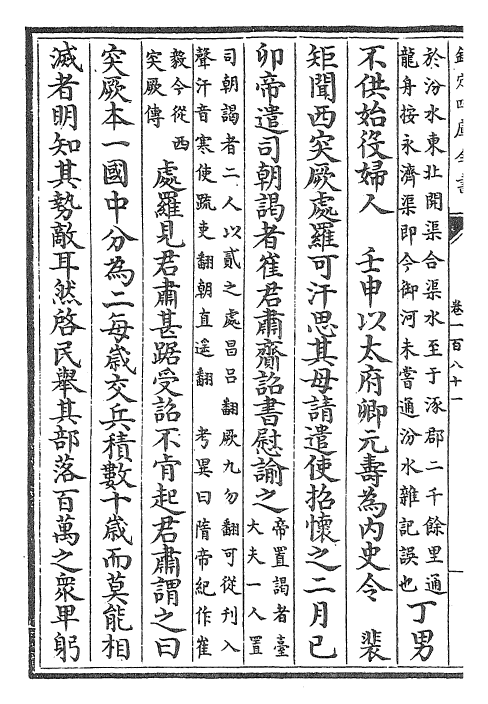 欽定四庫全書
卷一百八十一
於汾水東北開渠合渠水至于涿郡二千餘里通
龍舟按永濟渠即今御河未嘗通汾水雜記誤也
丁男
不供始役婦人 壬申以太府卿元壽為內史令 裴
矩聞西突厥處羅可汗思其母請遣使招懷之二月己
卯帝遣司朝謁者崔君肅齎詔書慰諭之
帝置謁者臺
大夫一人置
司朝謁者二人以貳之處昌呂翻厥九勿翻可從刊入
聲汗音寒使疏吏翻朝直遥翻 考異曰隋帝紀作崔
毅今從西
突厥傳
處羅見君肅甚踞受詔不肯起君肅謂之曰
突厥本一國中分為二每歲交兵積數十歲而莫能相
滅者明知其勢敵耳然啓民舉其部落百萬之衆卑躬